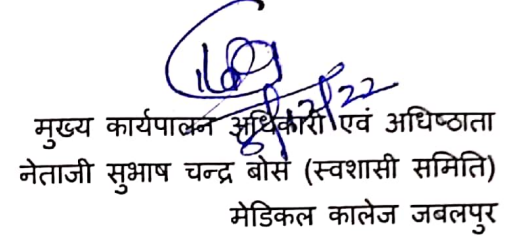 8/12/22
मुख्य कार्यपालन अधिकारी एवं अधिष्ठाता
नेताजी सुभाष चन्द्र बोस (स्वशासी समिति)
मेडिकल कालेज जबलपुर